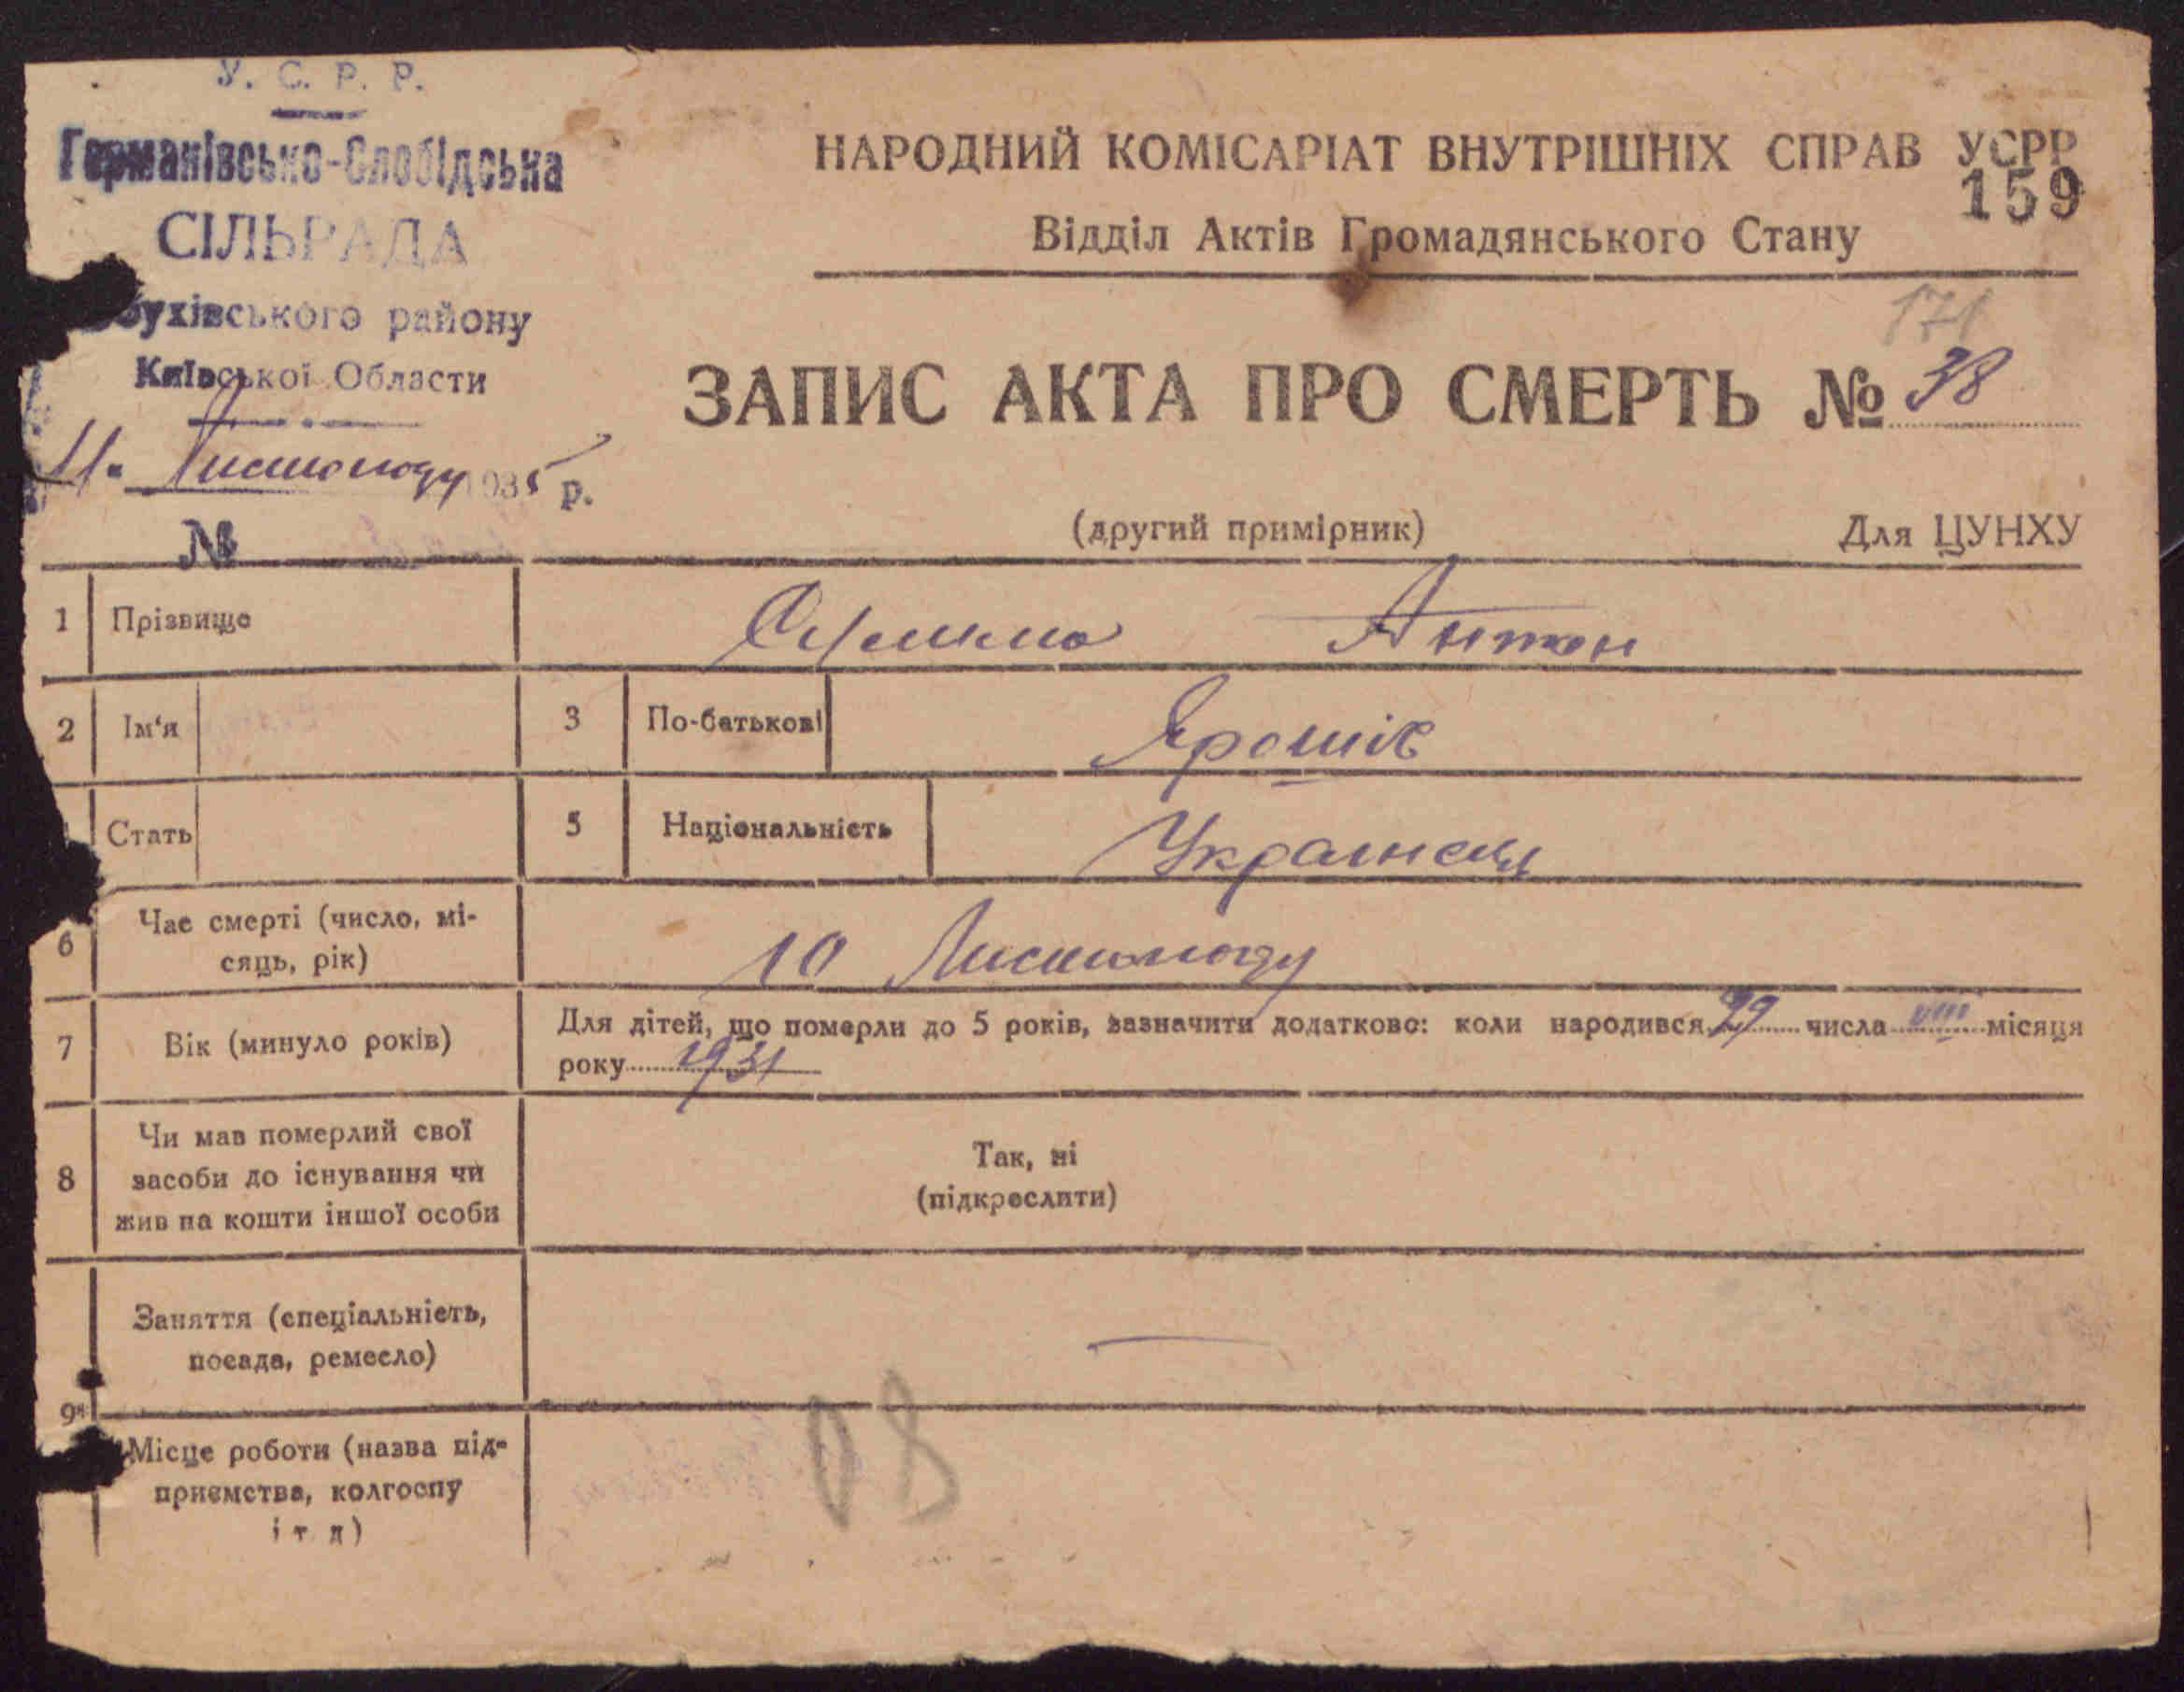 У. С. Р. Р.
Германівсько-Слобідська
СІЛЬРАДА
бухівського району
Київської Области
11. Листопаду 1935 р.
№
НАРОДНИЙ КОМІСАРІАТ ВНУТРІШНІХ СПРАВ УСРР
159
Відділ Актів Громадянського Стану
171
ЗАПИС АКТА ПРО СМЕРТЬ № 38
(другий примірник) Для ЦУНХУ
1 Прізвище Антон
2 Ім‘я 3 По-батькові Ярошів
Стать 5 Національність
6 Час смерті (число, мі-
сяць, рік) 10 Листопаду
7 Вік (минуло років) Для дітей, що померли до 5 років, зазначити додатково: коли народився 29 числа VIII місяця
року 1931
8 Чи мав померлий свої
засоби до існування чи
жив на кошти іншої особи
Так, ні
(підкреслити)
Заняття (спеціальність,
посада, ремесло)
9
Місце роботи (назва під-
приємства, колгоспу
і т д)
08